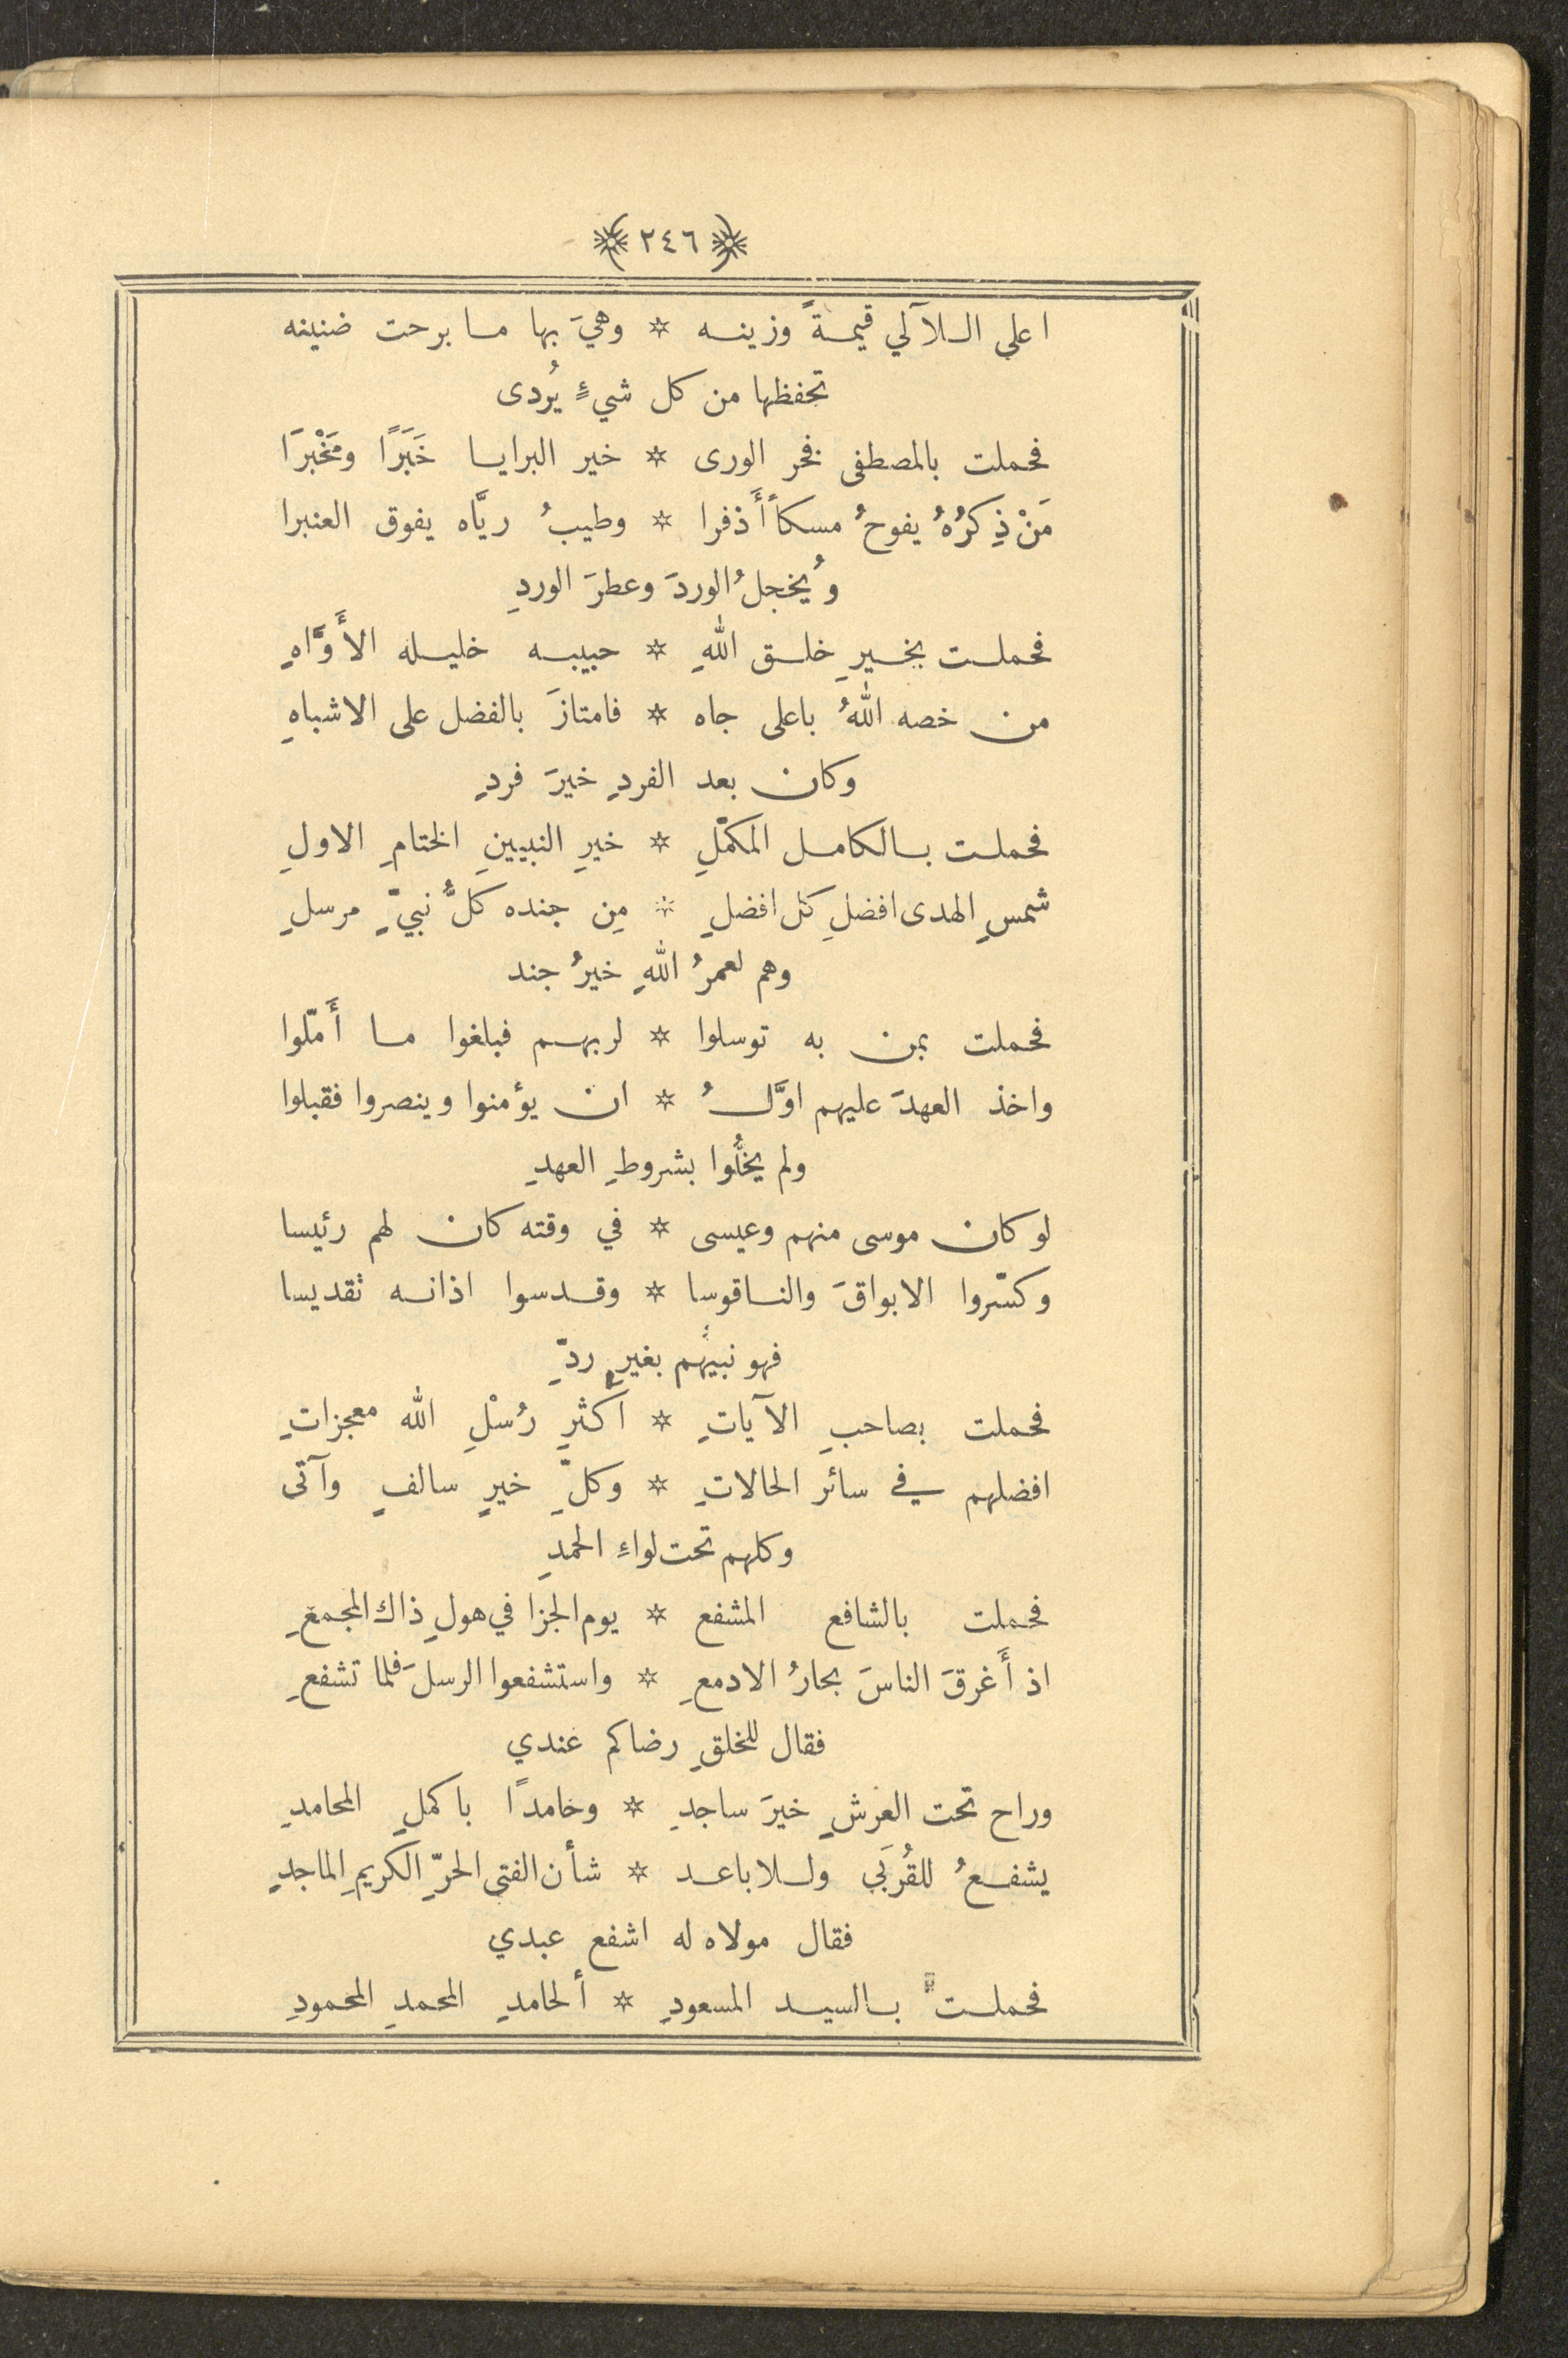 ٢٤٦
اعلى اللآلي قيمةً وزينه * وهيَ بها ما برحت ضنينه
تحفظها من كل شيءٍ يُردى
فحملت بالمصطفى فخر الورى * خير البرايا خَبَرًا ومَخْبرَا
مَنْ ذِكرُهُ يفوحُ مسكاً أَذفرا * وطيبُ ريَّاه يفوق العنبرا
ويُخجلُ الوردَ وعطرَ الوردِ
فحملت بخيرِ خلق اللهِ * حبيبه خليله الأَوَّاهِ
من خصه اللهُ باعلى جاه * فامتازَ بالفضل على الاشباهِ
وكان بعد الفردِ خيرَ فردِ
فحملت بالكامل المكمّلِ * خيرِ النبيينِ الختامِ الاولِ
شمسِ الهدى افضلِ كل افضلِ * مِن جنده كلُّ نبيّ مرسلِ
وهم لعمرُ اللهِ خيرُ جند
فحملت بمن به توسلوا * لربهم فبلغوا ما أَمّلوا
واخذ العهدَ عليهم اوَّلُ * ان يؤمنوا وينصروا فقبلوا
ولم يخلُّوا بشروطِ العهدِ
لو كان موسى منهم وعيسى * في وقته كان لهم رئيسا
وكسّروا الابواقَ والناقوسا * وقدسوا اذانه تقديسا
فهو نبيهُم بغيرِ ردّ
فحملت بصاحبِ الآياتِ * أَكثرِ رُسْلِ الله معجزاتِ
افضلهم في سائر الحالاتِ * وكلّ خيرٍ سالفٍ وآتى
وكلهم تحت لواءِ الحمدِ
فحملت بالشافع المشفع * يوم الجزا في هولِ ذاك المجمعِ
اذ أَغرقَ الناسَ بحارُ الادمعِ * واستشفعوا الرسلَ فلما تشفعِ
فقال للخلقِ رضاكم عندي
وراح تحت العرشِ خيرَ ساجدِ * وحامدًا باكملِ المحامدِ
يشفعُ للقُربَى وللاباعد * شأن الفتى الحرّ الكريمِ الماجدِ
فقال مولاه له اشفع عبدي
فحملت بالسيد المسعودِ * ألحامدِ المحمدِ المحمودِ